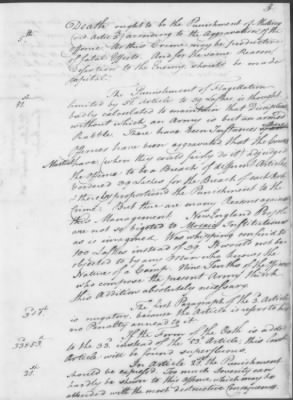 3
Death ought to be the Punishment of Mutiny
5.th (at Article 5) according to the Aggravation of the
Offence. As this Crime may be productive
of fatal Effects. And for the same Reason
Desertion to the Enemy should be made
Capital.
The Punishment of Flagellation
limited by Article to 39 lashes is thought
badly calculated to maintain that Discipline
without which, an Army is but an armed
Rabble. There have been Instances where
Offences have been aggravated that the Courts
Martial have (when they could fairly do it) adjudged
the Offence to be a Breach of different Articles
& ordered 39 Lashes for the Breach of each Article
& thereby proportioned the Punishment to the
Crime. But there are many Reasons against
this Management. New England People
are not so bigoted to Mosaic Institutions
as is imagined. Was whipping confined to
100 Lashes instead of 39 it would not be
objected to by any Man who knows the
Nature of a Camp.
who compose the present Army think
this Addition absolutely necessary.
The last Paragraph of the 3. Article
is nugatory, because the Article it refers to has
no Penalty annexed to it.
If the Terms of the Oath is added
to the 33. instead of the 53. Article, this last
Article will be found superfluous.
In Article 25.th the Punishment
should be expressed. Too much Severity can
hardly be shewn to this Offence, which may be
attended with the most destructive Consequences.